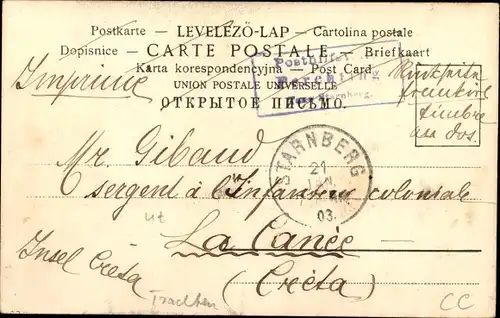 Postkarte – LEVELEZŐ-LAP – Cartolina postale
Dopisnice – CARTE POSTALE – Briefkaart
Karta korespondencyjna – Post Card
UNION POSTALE UNIVERSELLE
ОТКРЫТОЕ ПИСЬМО.
Imprimé
Posthilfstelle
Berg
Starnberg.
Rückseite
frankirt
timbre
au dos.
STARNBERG
21
JAN
03.
Mr. Gibaud
sergent à l'Infanterie coloniale
ut
La Canée
Insel Creta
(Crèta)
Trachten
CC